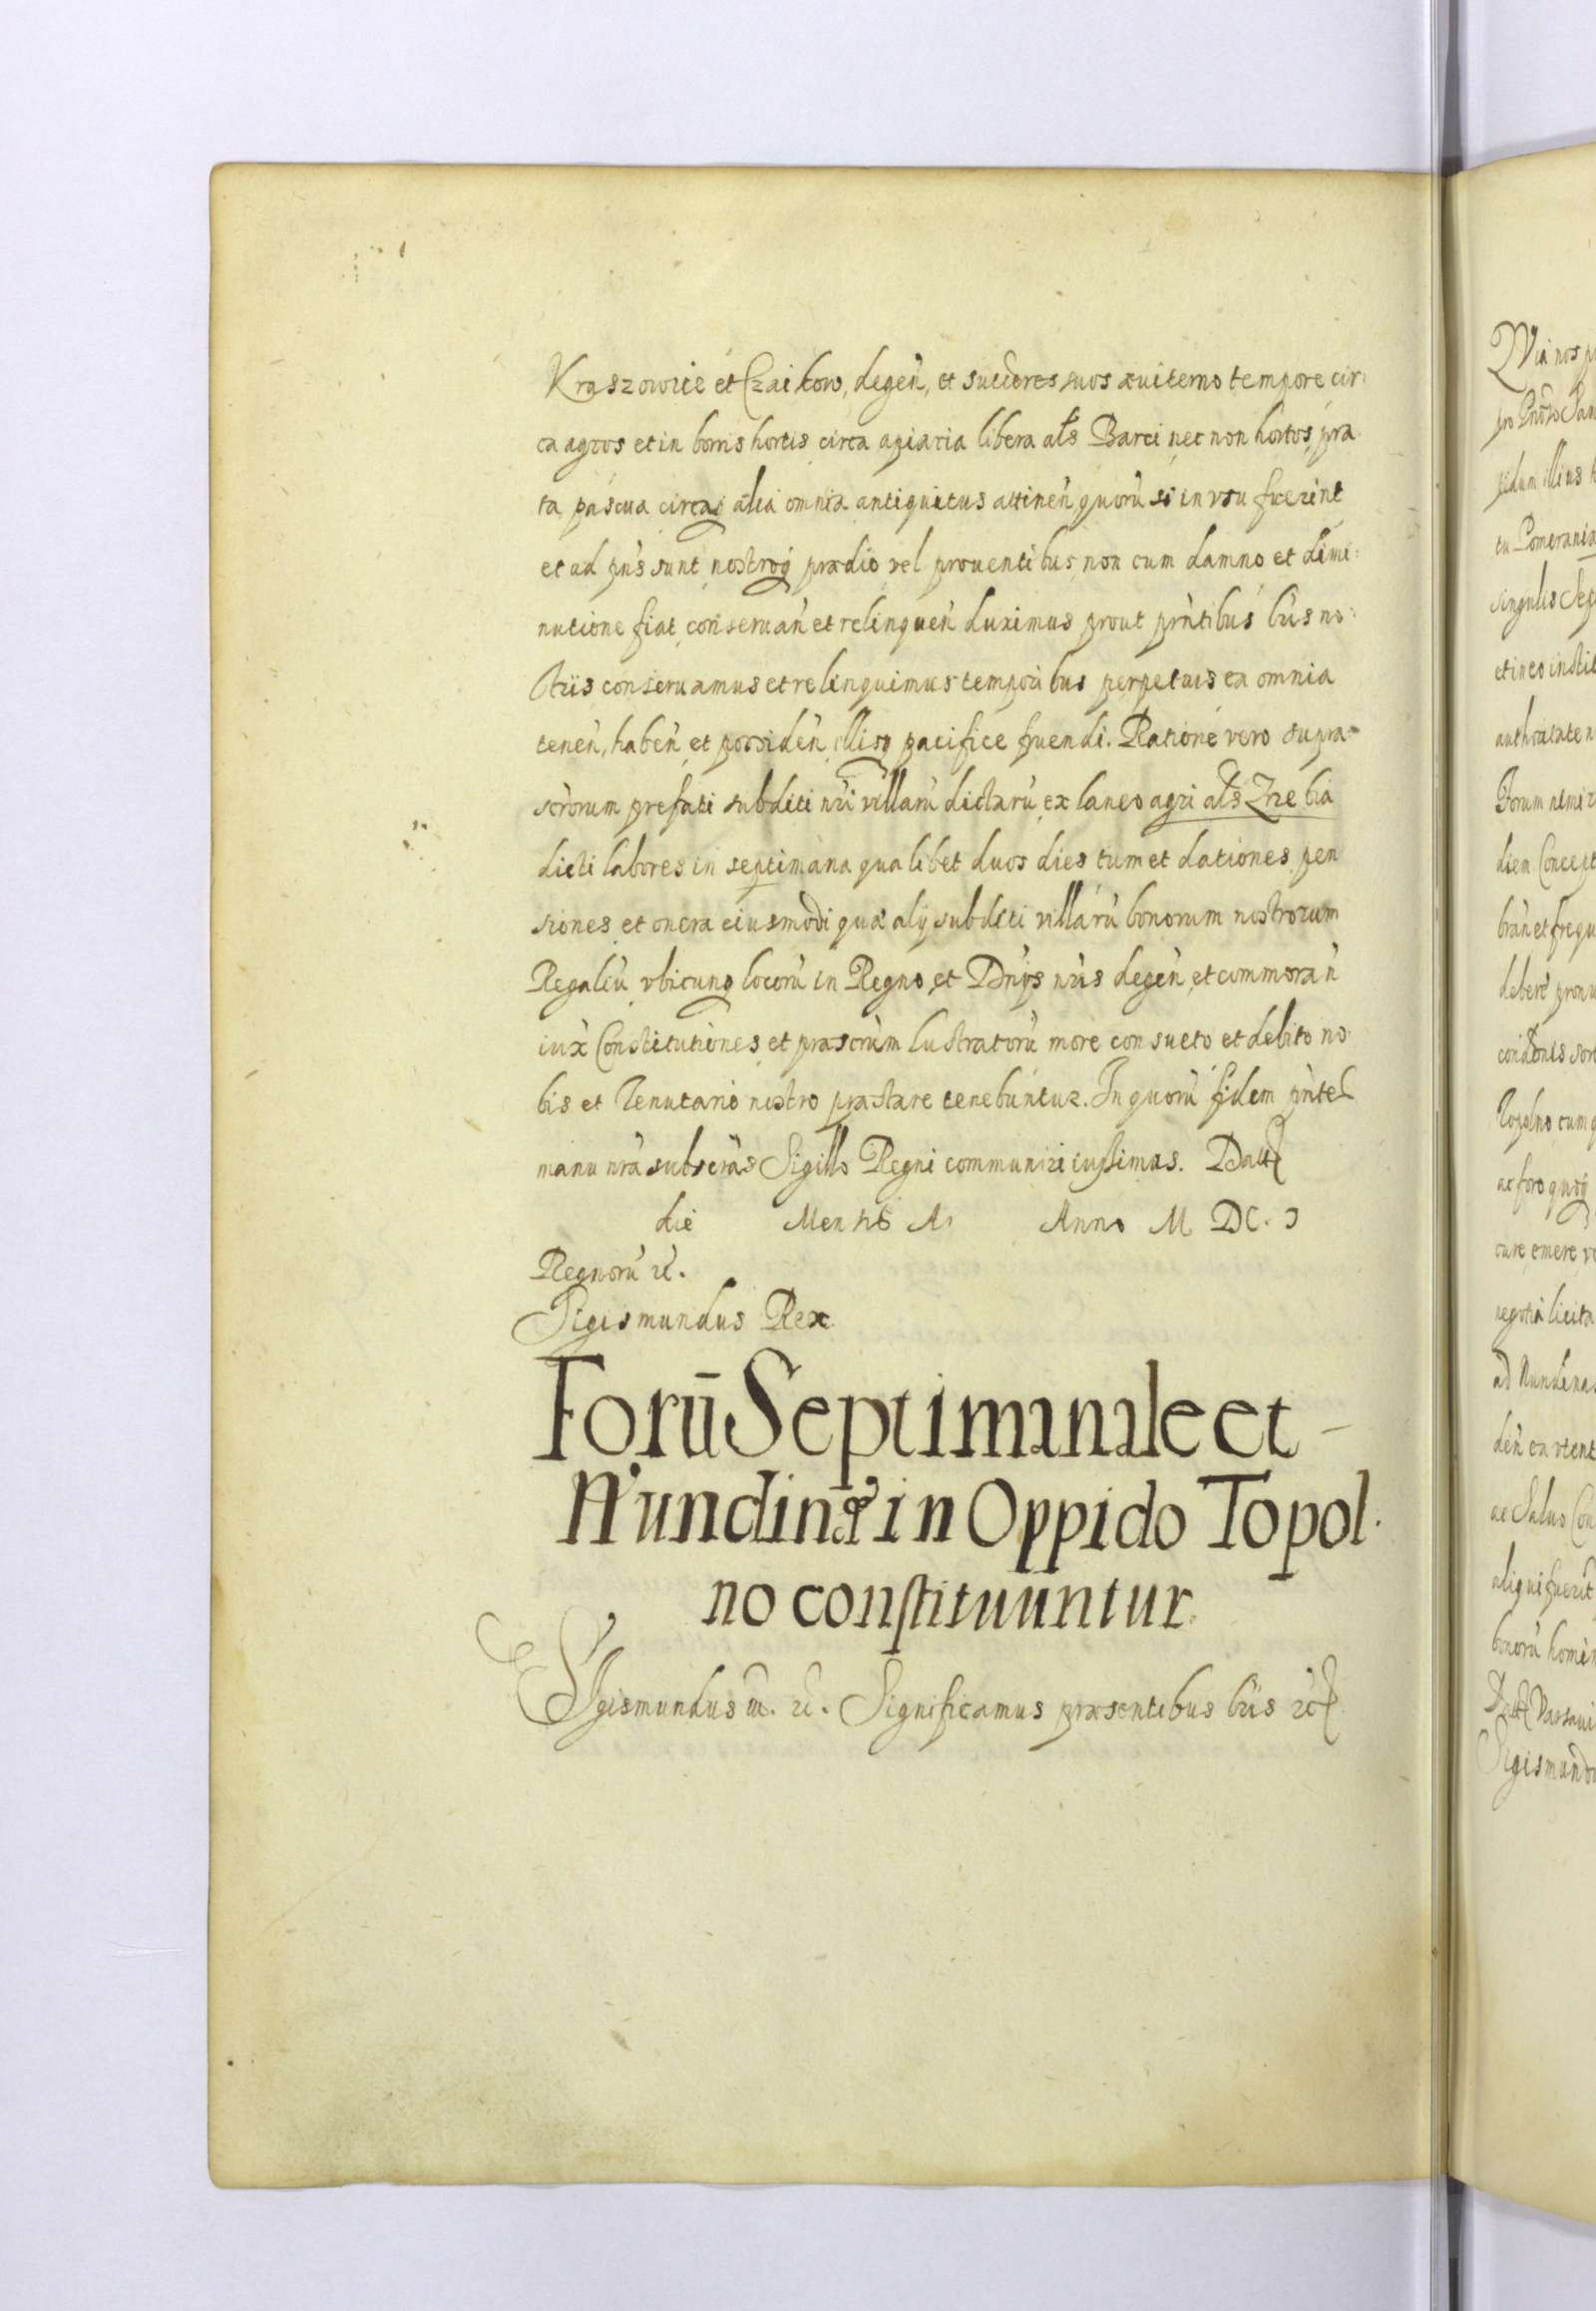 Kraszowice et Czaikow, degeñ, et succores suos æuiterno tempore cir:
ca agros et in borris hortis circa apiaria libera als Barci nec non hortos, pra
ta pascua circaq alia omnia antiquitus attineñ quorũ si in vsu fuerint
et ad pñs sunt nostroq prædio vel prouentibus non cum damno et dimi:
nutione fiat conseruañ et relinqueñ duximus prout pñtibus lr̃is no:
stris conseruamus et relinquimus temporibus perpetuis ea omnia
teneñ, habeñ et possideñ, illisq pacifice fruendi. Ratione vero supra=
scr̃orum prefati subditi nr̃i villarũ dictarũ ex laneo agri als Zrzebia
dicti labores in septimana qualibet duos dies tum et dationes pen
siones et onera eiusmodi quæ alij subditi villarũ bonorum nostrorum
Regaliũ vbicunq locorũ in Regno et Dnijs nr̃is degeñ et commorañ
iux Constitutiones et præscr̃um lustratorũ more consueto et debito no
bis et Tenutario nostro præstare tenebuntur. In quorũ fidem pñtes
manu nr̃a subscr̃as Sigillo Regni communiri iussimus. Datt
die Mensis A Anno M DC. I
Regnorũ etc̃.
Sigismundus Rex
Forū Septimanale et
Nundinæ in Oppido Topol
no constituuntur.
Sigismundus III. etc̃. Significamus præsentibus lr̃is etc̃
Quia nos p
singulis Sep
et in eo instit
authoritate n
Forum
diem Concept
debere
Topolno cum
ac foro quoq
emere
negotia licita
ad Nundinas
ac Saluo Con
aliqui fuerit
bonorũ homin
Datt Varsaui
Sigismundu